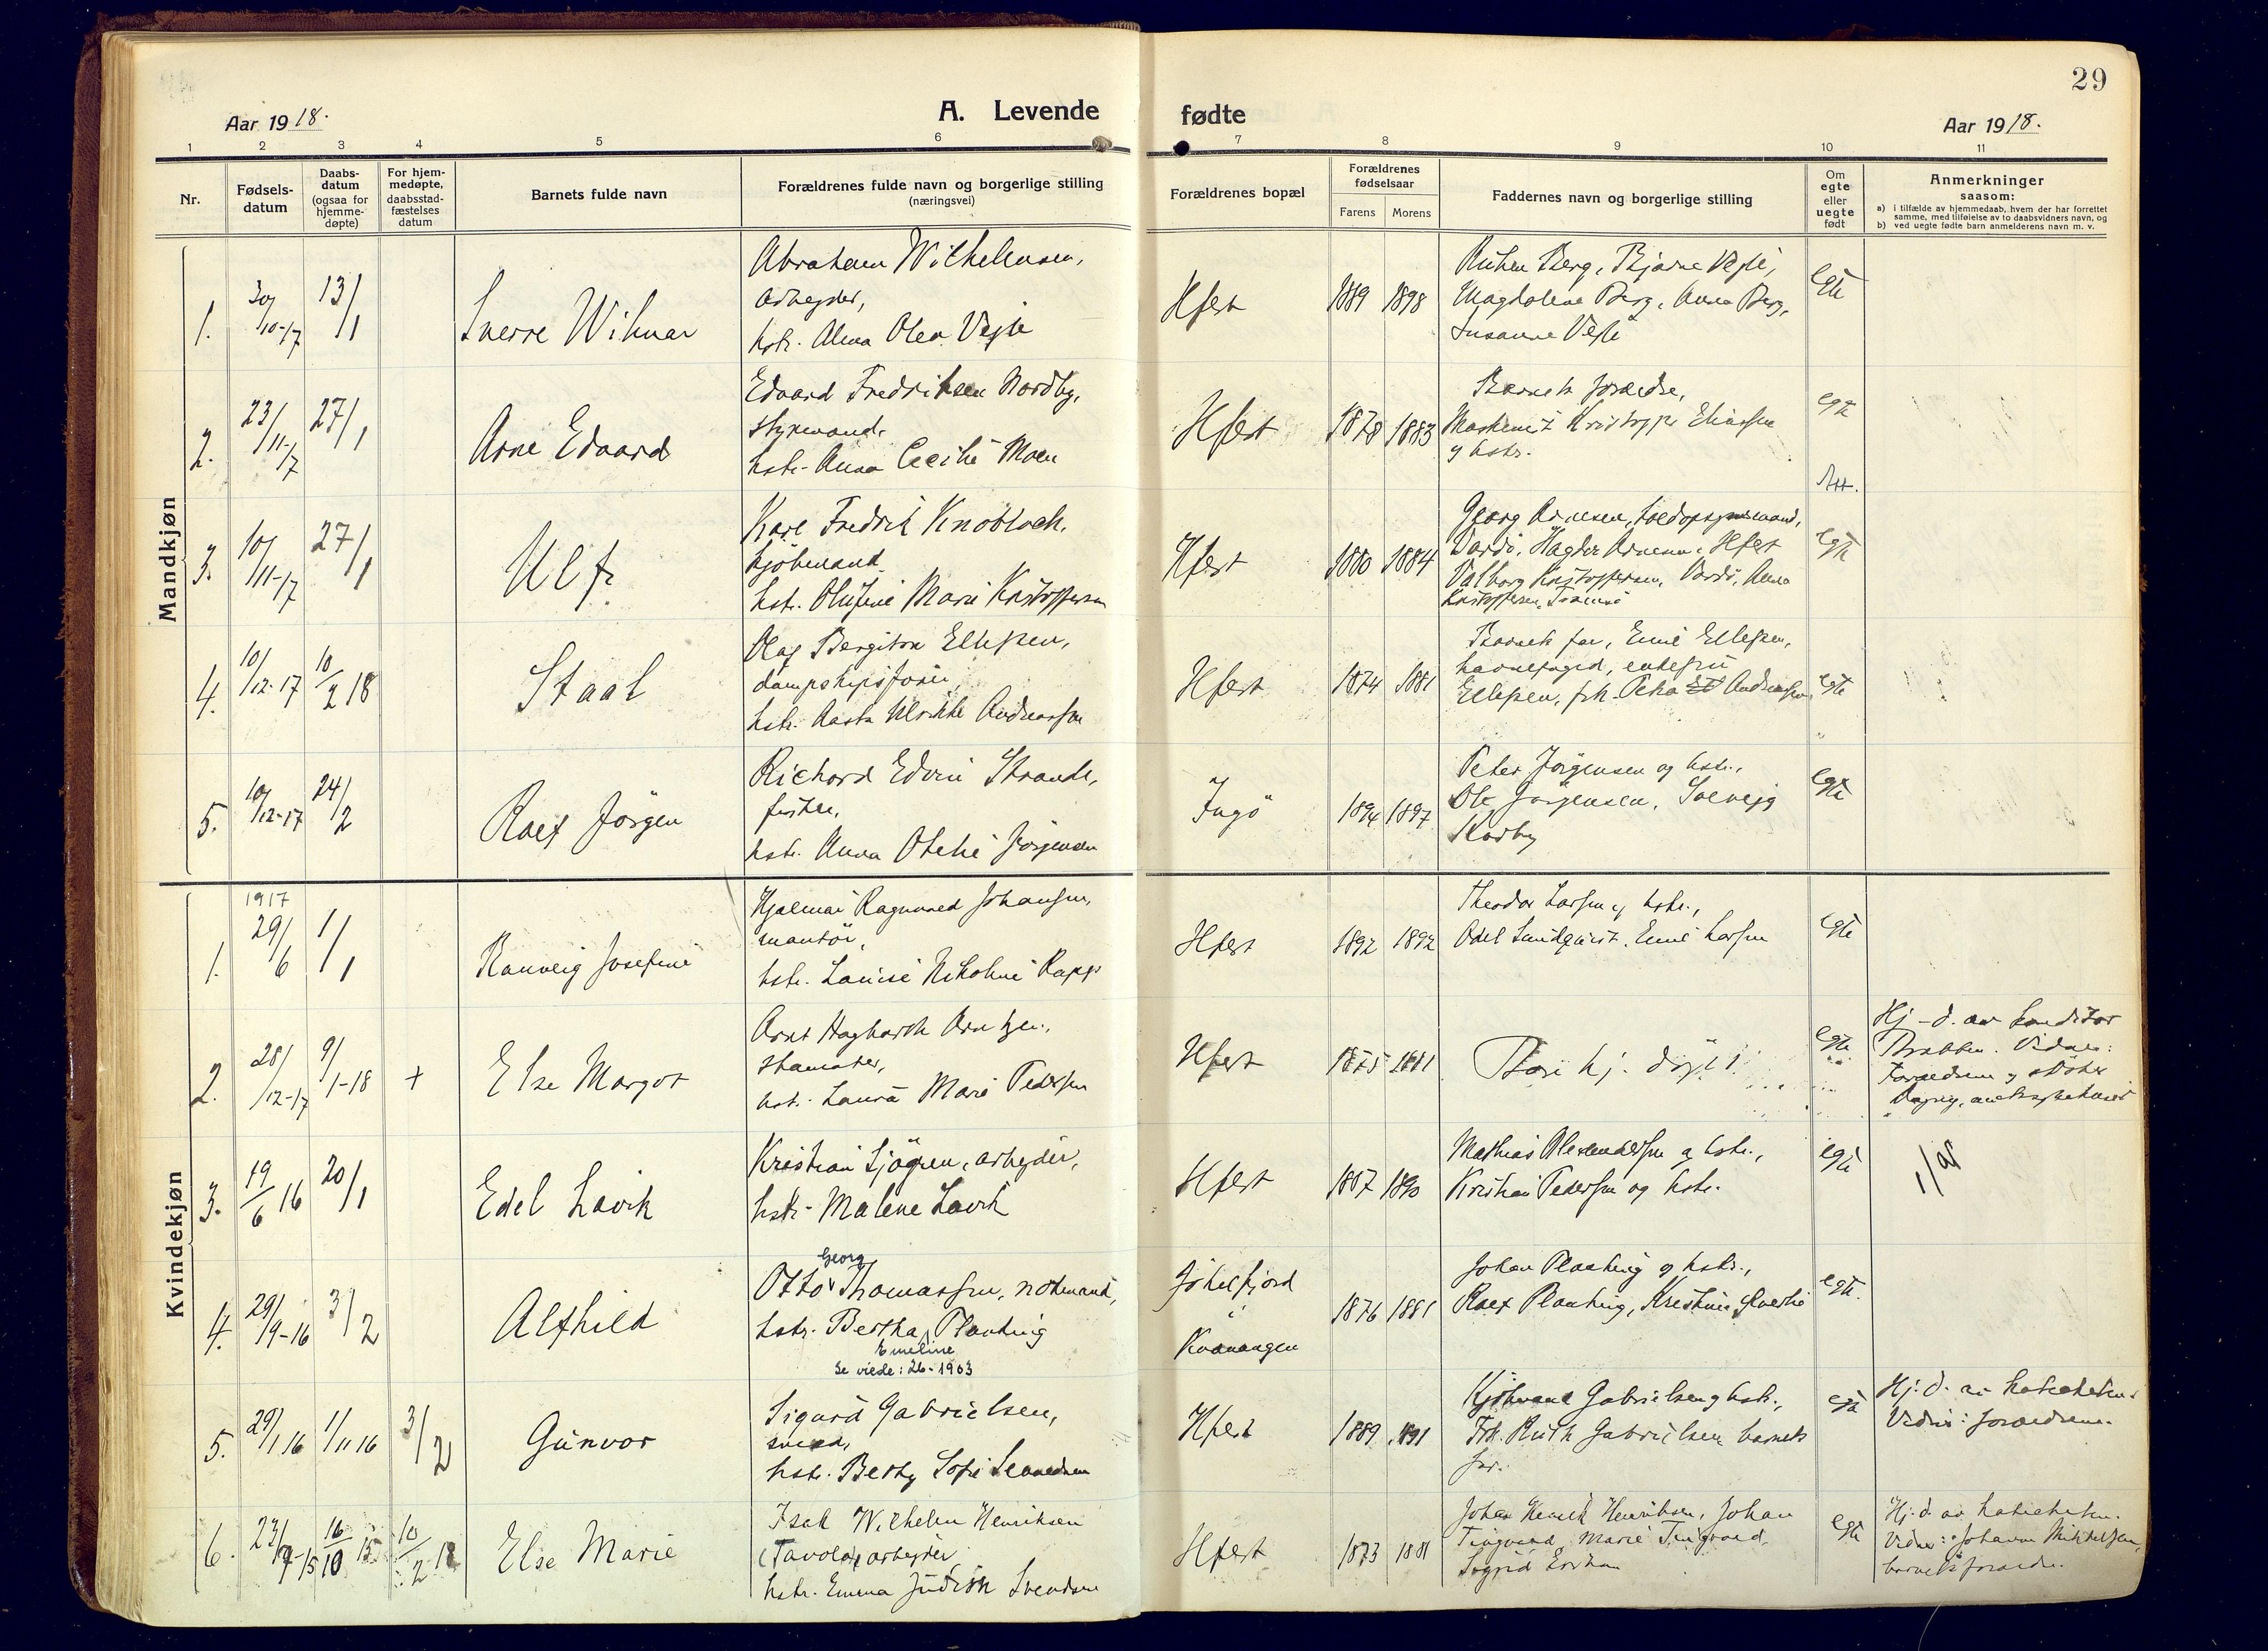 29
Aar 1918.
A. Levende
fødte
Aar 1918.
1 2 3 4 5 6 7 8 9 10 11
Nr.
Fødsels-
datum
Daabs-
datum
(ogsaa for
hjemme-
døpte)
For hjem-
medøpte,
daabsstad-
fæstelses
datum
Barnets fulde navn
Forældrenes fulde navn og borgerlige stilling
(næringsvei)
Forældrenes bopæl
Forældrenes
fødselsaar
Farens Morens
Faddernes navn og borgerlige stilling
Om
egte
eller
uegte
født
Anmerkninger
saasom:
a) i tilfælde av hjemmedaab, hvem der har forrettet
samme, med tilføielse av to daabsvidners navn, og
b) ved uegte fødte barn anmelderens navn m. v.
Mandkjøn
1. 30/10-17 13/1 Sverre Wilmar
Abraham Wilhelmsen,
arbeyder,
hstr. Alma Olea Vejle
Hfest 1889 1898
Ruben Berg, Bjarne Vejle,
Magdalene Berg, Anna Berg,
Susanne Vejle
Egte
2. 23/11-17 27/1 Arne Edvard
Edvard Fredriksen Nordby,
styrmand,
hstr. Anna Cecilie Moen
Hfest 1878 1883
Barnets forældre,
Maskinist Kristoffer Eliassen
og hstr.
egte
3. 10/11-17 27/1 Ulf
Karl Fredrik Knobloch,
kjøbmand
hstr. Olufine Marie Kristoffersen
Hfest 1880 1884
Georg Arnesen, toldopsynsmand,
Vardö, Arnesen, Hfest
Valborg Kristoffersen, Vardö, Anna
Kristoffersen, Tromsö
Egte
4. 10/12-17 10/2 18 Staal
Olaf Bergiton Ellefsen,
dampskipsförer,
hstr. Aasta Ulrikke Andreassen
Hfest 1874 1881
Barnets far, Emil Ellefsen,
havnefoged, enkefru
Ellefsen, frk. Andreassen
egte
5. 10/12-17 24/2 Ralf Jörgen
Richard Edvin Strand,
fisker,
hstr. Anna Otelie Jörgensen
Ingö 1894 1897
Peter Jörgensen og hstr.,
Ole Jörgensen, Solvejg
Skorby
Egte
Kvindekjøn
1. 1917 29/6 1/1 Ranveig Josefine
Hjalmar Ragnvald Johansen,
montör,
hstr. Louise Nikoline Rapp
Hfest 1892 1892
Theodor Larsen og hstr.,
Odel Lundquist, Emil Larsen
Egte
2. 28/12-17 9/1-18 + Else Margot
Arnt Hagbarth Arntzen,
skomaker,
hstr. Laura Marie Pedersen
Hfest 1875 1881
Bare hj. døpt!
Egte
Hj-d. av
Vidner:
Forældrene og
3. 19/6 16 20/1 Edel Lavik
Kristian Sjögren, arbeyder,
hstr. Malene Lavik
Hfest 1887 1890
Mathias Olesen og hstr.,
Kristian Pedersen og hstr.
egte
4. 29/9-16 3/2 Alfhild
Georg
Otto Thomassen, notmand,
hstr. Bertha Planting
Emeline
Se viede: 26-1903
Jökelfjord
i
Kvænangen
1876 1881
Johan Planting og hstr.,
Ralf Planting, Kristine
egte.
5. 29/1 16 1/11 16 3/2 Gunvor
Sigurd Gabrielsen,
svend,
hstr. Betty Sofie
Hfest 1889 1891
Kjøbmand Gabrielsen og hstr.,
Frk. Ruth Gabrielsen barnets
far.
egte
Hj. d. av kateketen.
Vidner: forældrene.
6. 23/9-15 16/10 15 10/2 18 Else Marie
Isak Wilhelm Henriksen
(Tavola) arbeyder
hstr. Emma Judith Svendsen
Hfest 1873 1881
Johan Henrik Henriksen, Johan
Tingvold, Marie Tingvold,
Sigrid
egte
Hj. d. av kateketen.
Vidner: Johanna Mikkelsen,
barnets forældre.